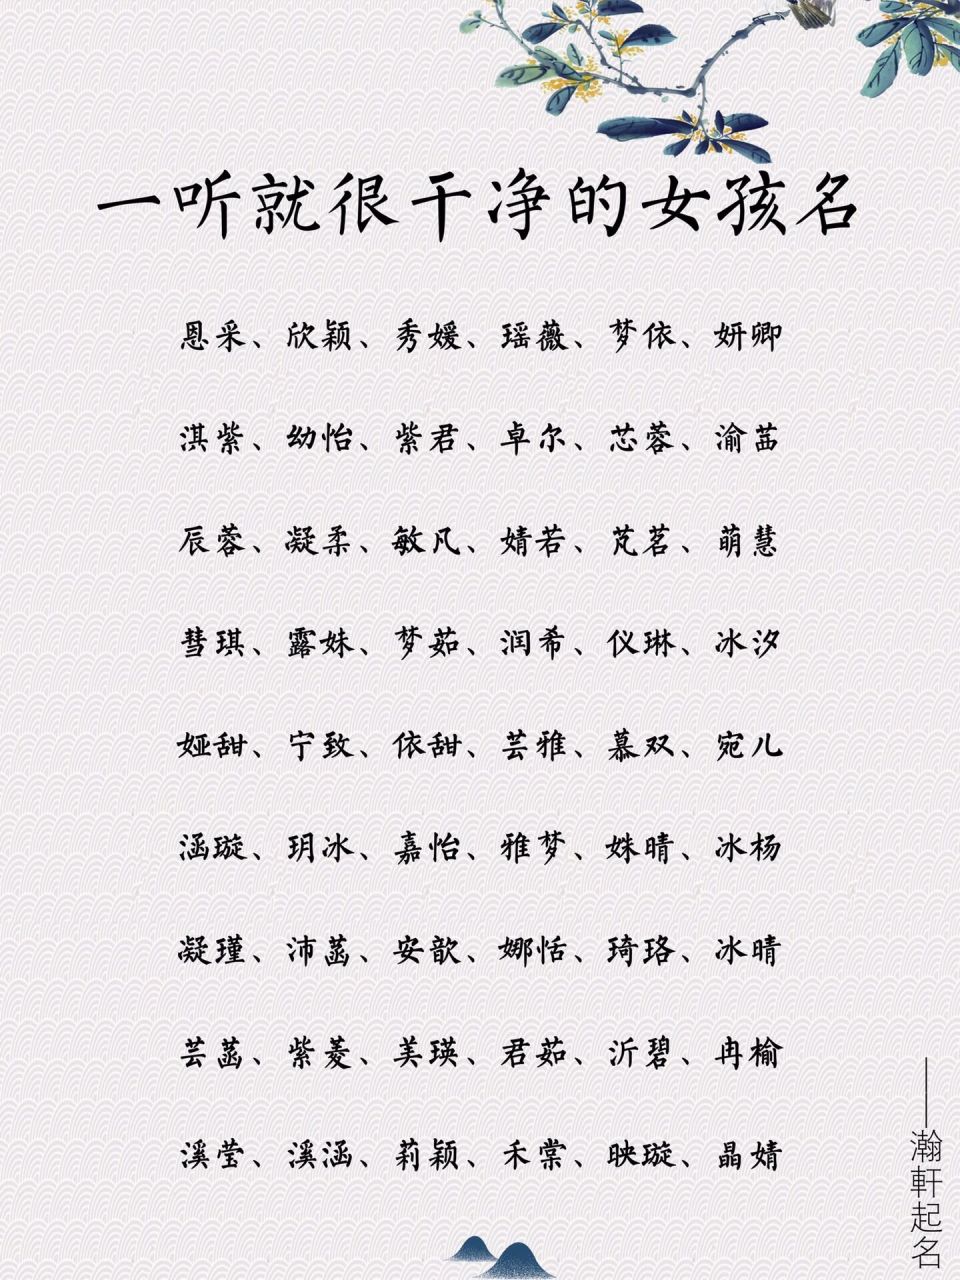 一听就很干净的女孩名
恩采、欣颖、秀媛、瑶薇、梦依、妍卿
淇紫、幼怡、紫君、卓尔、芯蓉、渝茁
辰蓉、凝柔、敏凡、婧若、芃茗、萌慧
彗琪、露姝、梦茹、润希、仪琳、冰汐
娅甜、宁致、依甜、芸雅、慕双、宛儿
涵璇、玥冰、嘉怡、雅梦、姝晴、冰杨
凝瑾、沛菡、安歆、娜恬、琦珞、冰晴
芸菡、紫菱、美瑛、君茹、沂碧、冉榆
溪莹、溪涵、莉颖、禾棠、映璇、晶婧
——瀚軒起名